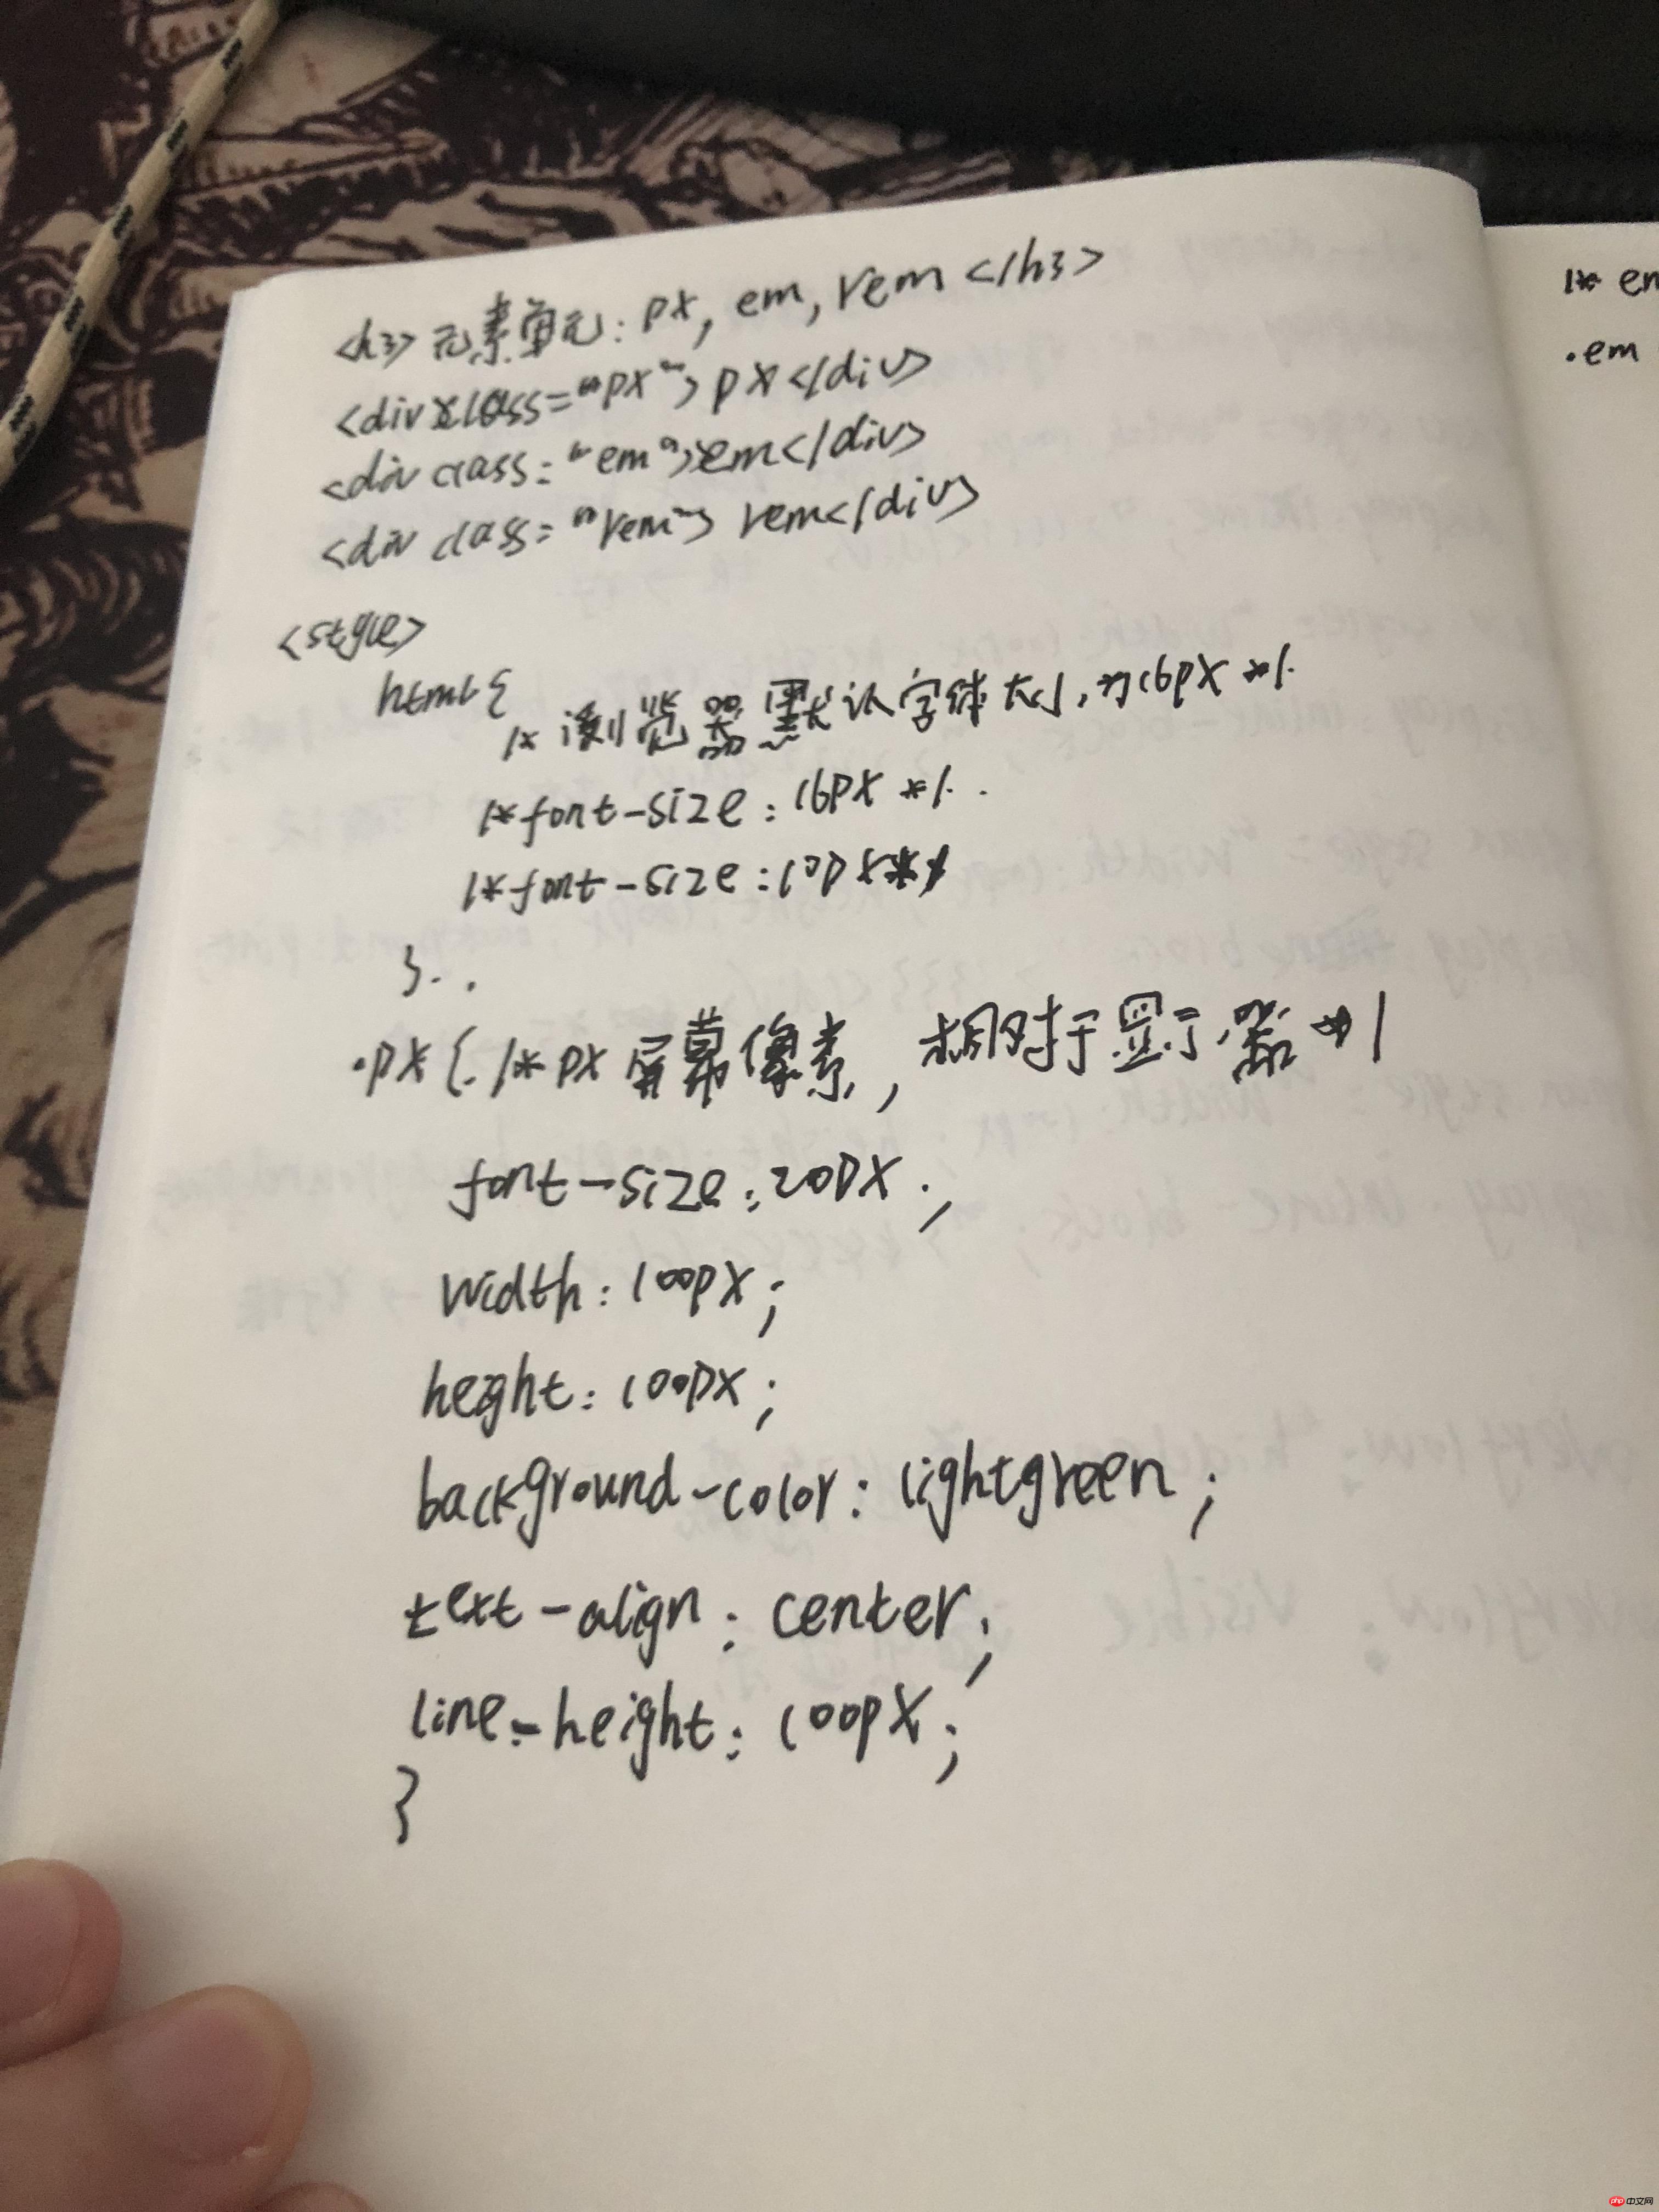 <h3>元素单元：px, em, rem</h3>
<div class="px">px</div>
<div class="em">em</div>
<div class="rem">rem</div>
<style>
html{
/* 浏览器默认字体大小，为16px */
/*font-size:16px */
/*font-size:10px*/
}
.px{ /* px 屏幕像素，相对于显示器 */
font-size:20px;
width:100px;
height:100px;
background-color:lightgreen;
text-align:center;
line-height:100px;
}
/* em
.em
php 中文网